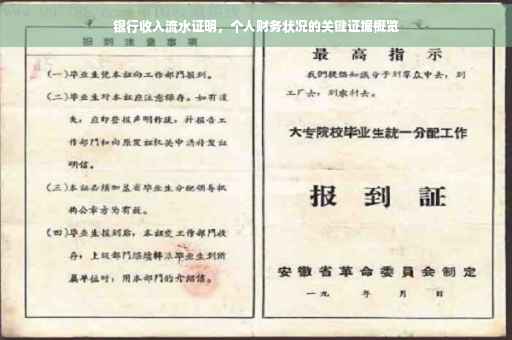 银行收入流水证明，个人财务状况的关键证据概览
报到注意事项
(一)毕业生凭本证向工作部门报到。
(二)毕业生对本证应注意保存。如有遗
失，应即登报声明作废，并报告工
作部门和向原发证机关申请补发证
明信。
(三)本证必须加盖省毕业生分配领导机
构公章方为有效。
(四)毕业生报到后，本证交工作部门收
存；上级部门继续转派毕业生到所
属单位时，用本部门的介绍信。
最高指示
我们提倡知识分子到群众中去，到
工厂去，到农村去。
大专院校毕业生统一分配工作
报到证
安徽省革命委员会制定
一九 年 月 日